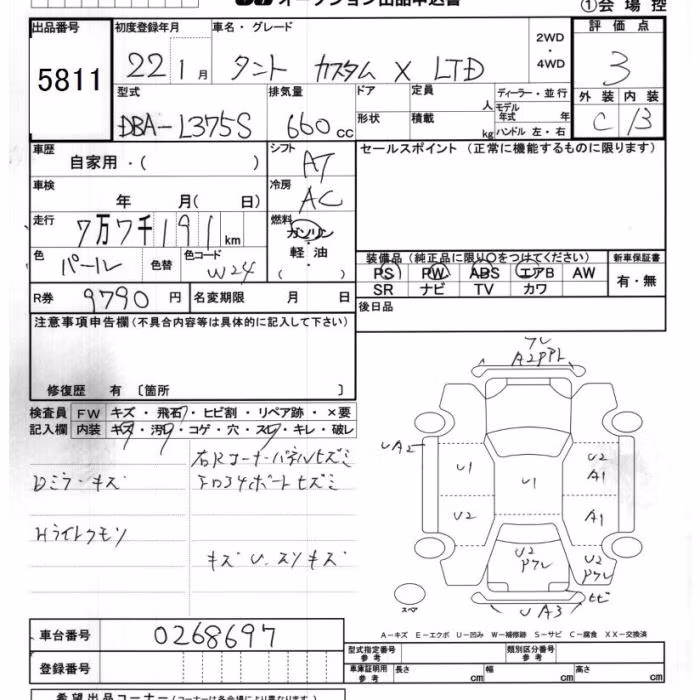 オークション出品申込書
①会場控
出品番号 初度登録年月 車名・グレード 評価点
5811 22 1月 タント カスタム X LTD 2WD・4WD 3
型式 排気量 ドア 定員 人 ディーラー・並行 外装 内装
DBA-L375S 660cc 形状 積載 kg モデル年式 年 ハンドル 左・右 C B
車歴 シフト セールスポイント (正常に機能するものに限ります)
自家用・( ) AT
車検 冷房
年 月( 日) AC
走行 燃料
7万7千191km ガソリン・軽油・( )
色 色替 色コード 装備品 (純正品に限り○をつけてください) 新車保証書
パール W24 PS PW ABS エアB AW 有・無
SR ナビ TV カワ
R券 9790円 名変期限 月 日 後日品
注意事項申告欄 (不具合内容等は具体的に記入して下さい)
修復歴 有 〔箇所 〕
検査員 FW キズ・飛石・ヒビ割・リペア跡・×要
記入欄 内装 キズ・汚レ・コゲ・穴・スレ・キレ・破レ
右Rコーナーパネルヒズミ
Dミラーキズ
ボートヒズミ
Hライトクモリ
キズ U. スリキズ
ワレ
A2PPL
UA2
U1 U1 U2
A1
U2 A1
U2
Pワレ
U2
Pワレ
ヒビ
スペア
UA3
A-キズ E-エクボ U-凹み W-補修跡 S-サビ C-腐食 XX-交換済
車台番号 0268697 型式指定番号 参考 類別区分番号 参考
登録番号 車庫証明用 参考 長さ cm 幅 cm 高さ cm
希望出品コーナー (コーナーは各会場により異なります。)